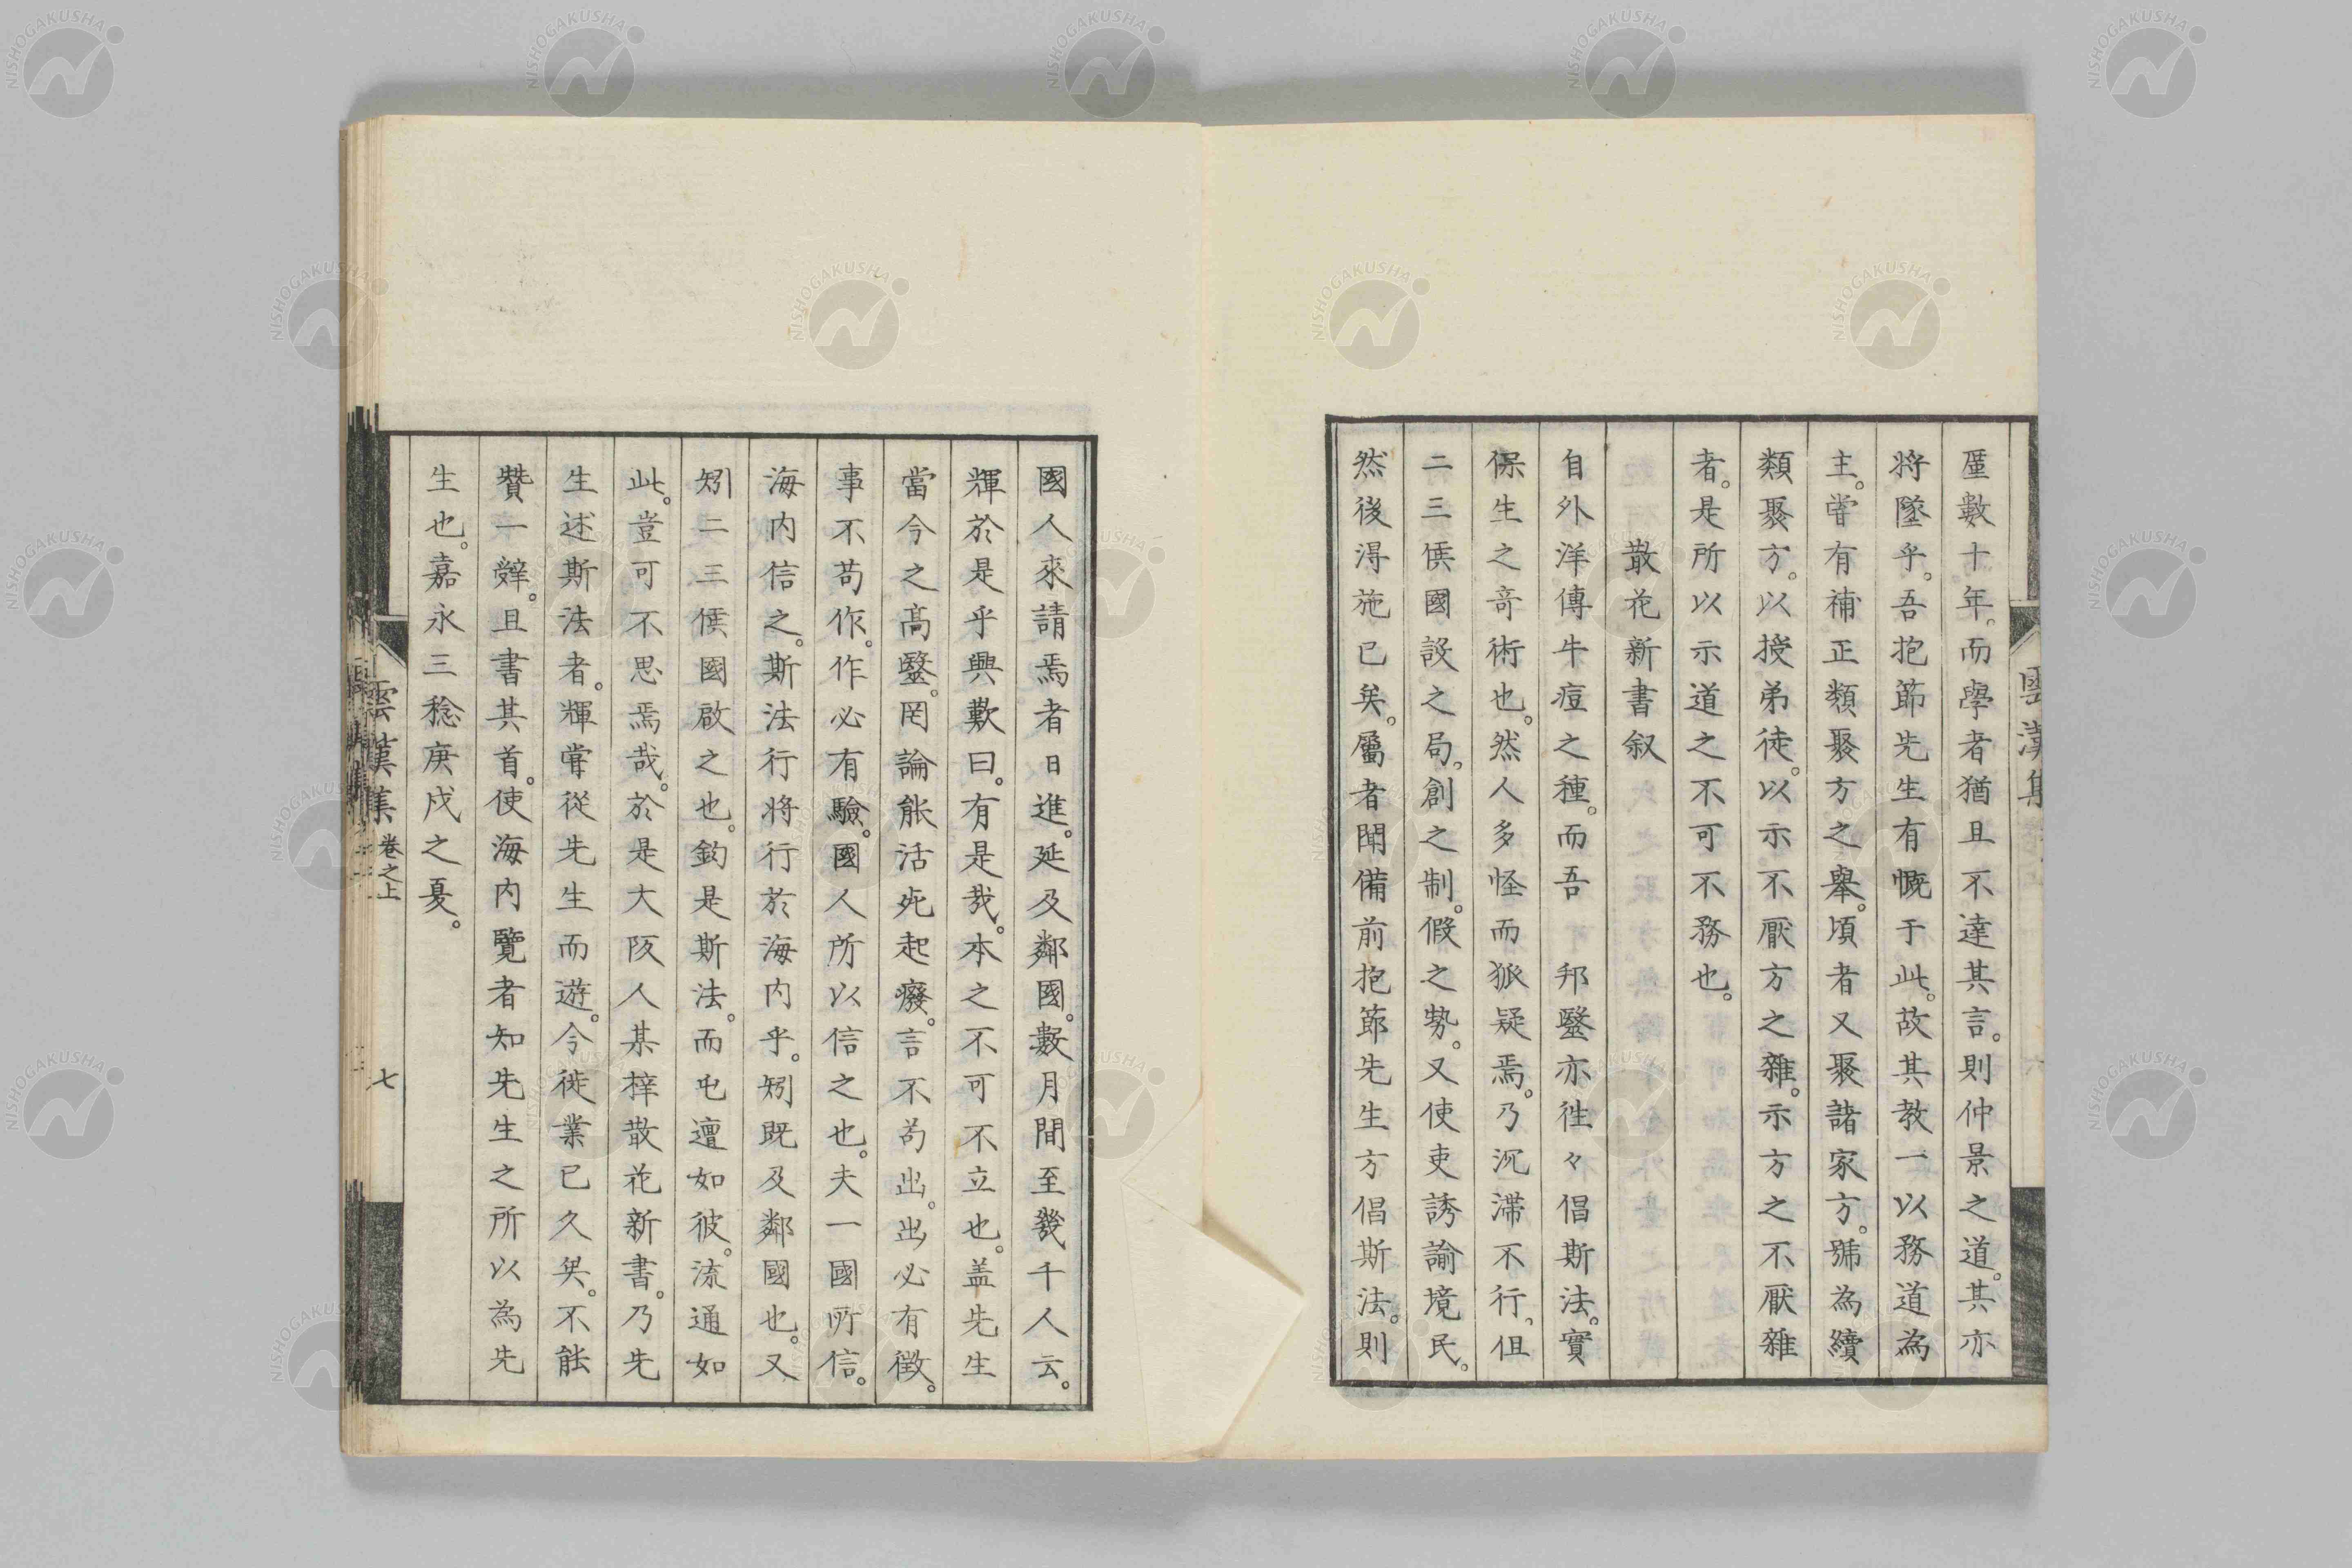 雲漢集
厪數十年。而學者猶且不達其言。則仲景之道。其亦
將墜乎。吾抱節先生有慨于此。故其教一以務道為
主。嘗有補正類聚方之舉。頃者又聚諸家方。號為續
類聚方。以授弟徒。以示不厭方之雜。示方之不厭雜
者。是所以示道之不可不務也。
散花新書叙
自外洋傳牛痘之種。而吾 邦毉亦徃々倡斯法。實
保生之奇術也。然人多怪而狐疑焉。乃沉滯不行。但
二三侯國設之局。創之制。假之勢。又使吏誘諭境民。
然後淂施已矣。屬者聞備前抱節先生方倡斯法。則
國人來請焉者日進。延及鄰國。數月間至幾千人云。
輝於是乎興歎曰。有是哉。本之不可不立也。盖先生
當今之高毉。罔論能活死起癈。言不苟出。出必有徴。
事不苟作。作必有驗。國人所以信之也。夫一國所信。
海内信之。斯法行将行於海内乎。矧既及鄰國也。又
矧二三侯國啟之也。鈞是斯法。而屯邅如彼。流通如
此。豈可不思焉哉。於是大阪人某梓散花新書。乃先
生述斯法者。輝嘗從先生而遊。今徙業已久矣。不能
贊一辭。且書其首。使海内覽者知先生之所以為先
生也。嘉永三稔庚戍之夏。
雲漢集 卷之上 七